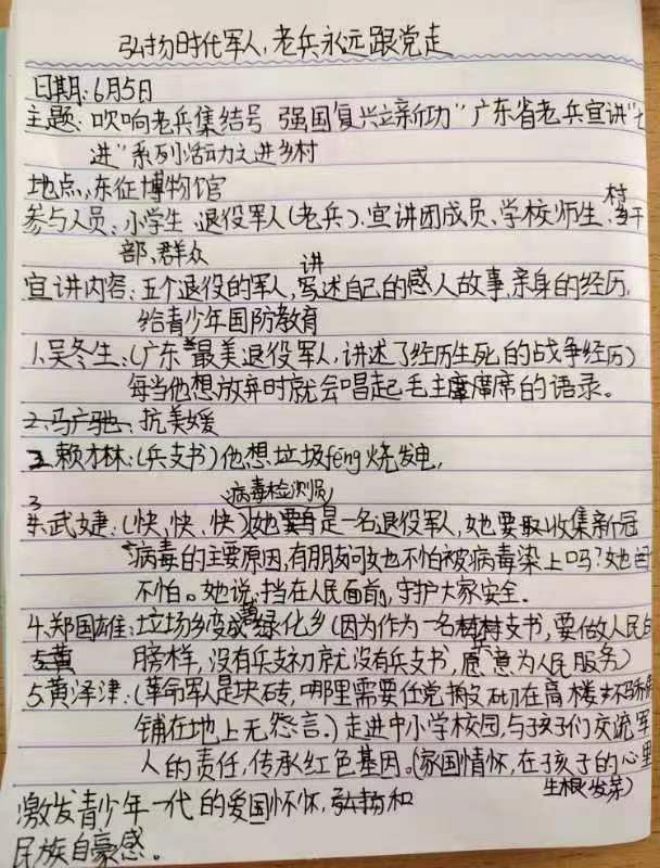 弘扬时代军人,老兵永远跟党走
日期:6月5日
主题:吹响老兵集结号 强国复兴立新功"广东省老兵宣讲"七
进"系列活动之进乡村
地点:东征博物馆
参与人员:小学生、退役军人(老兵)、宣讲团成员、学校师生、村干
部、群众
宣讲内容:五个退役的军人,讲述自己的感人故事,亲身的经历,
给青少年国防教育
1.吴冬生:(广东"最美退役军人,讲述了经历生死的战争经历)
每当他想放弃时就会唱起毛主席的语录。
2.马广驰、抗美媛
2.赖木林:(兵支书)他想垃圾fēng烧发电,
病毒检测员
3.武婕:(快、快、快)她是一名退役军人,她要取收集新冠
病毒的主要原因,有朋友问她不怕被病毒染上吗?她
不怕。她说:挡在人民面前,守护大家安全.
4.郑国雄:垃场乡变成碧绿化乡(因为作为一名村支书,要做人民的
膀样,没有兵支初就没有兵支书,愿意为人民服务)
5.黄泽津:(革命军人是块砖,哪里需要任党搬,砌在高楼
铺在地上无怨言.)走进中小学校园,与孩子们交流军
人的责任,传承红色基因。(家国情怀,在孩子的心里
生根(发芽)
激发青少年一代的爱国怀怀,弘扬和
民族自豪感。